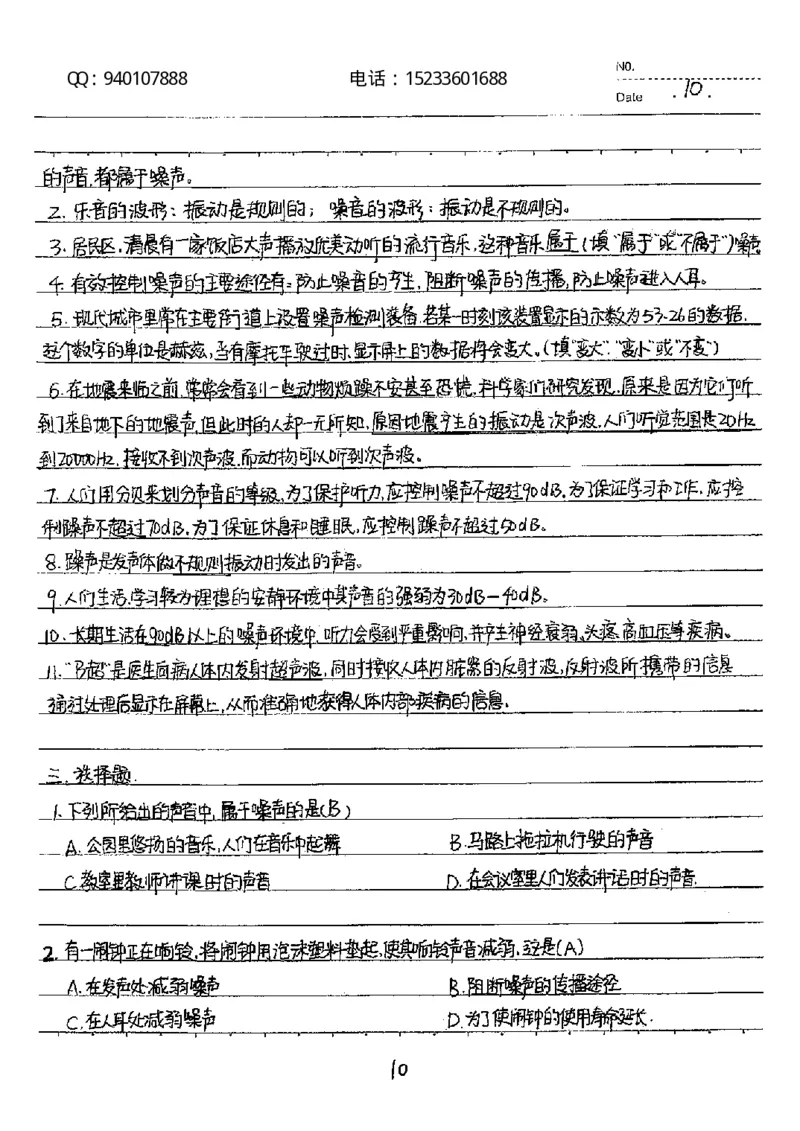 QQ：940107888 电话：15233601688 No.
Date .10.
的声音,都属于噪声。
2. 乐音的波形：振动是规则的；噪音的波形：振动是不规则的。
3. 居民区,清晨有一家饭店大声播放优美动听的流行音乐,这种音乐属于(填"属于"或"不属于")噪声
4. 有效控制噪声的主要途径有：防止噪音的产生,阻断噪声的传播,防止噪声进入人耳。
5. 现代城市里常在主要街道上设置噪声检测装备.若某一时刻该装置显示的示数为53.26的数据.
这个数字的单位是赫兹,当有摩托车驶过时.显示屏上的数据将会变大。(填"变大"."变小"或"不变")
6. 在地震来临之前,常常会看到一些动物烦躁不安甚至恐慌,科学家们研究发现.原来是因为它们听
到了来自地下的地震声,但此时的人却一无所知.原因地震产生的振动是次声波.人们听觉范围是20Hz
到20000Hz.接收不到次声波,而动物可以听到次声波。
7. 人们用分贝来划分声音的等级,为了保护听力,应控制噪声不超过90dB.为了保证学习和工作,应控
制躁声不超过70dB.为了保证休息和睡眠,应控制躁声不超过50dB。
8. 躁声是发声体做不规则振动时发出的声音。
9. 人们生活.学习较为理想的安静环境中其声音的强弱为30dB—40dB。
10. 长期生活在90dB以上的噪声环境中,听力会受到严重影响,并产生神经衰弱.头疼.高血压等疾病。
11. "B超"是医生向病人体内发射超声波,同时接收人体内脏器的反射波,反射波所携带的信息
通过处理后显示在屏幕上,从而准确地获得人体内部疾病的信息.
三.选择题.
1. 下列所给出的声音中,属于噪声的是(B)
A. 公园里悠扬的音乐,人们在音乐中起舞 B.马路上拖拉机行驶的声音
C.教室里教师讲课时的声音 D.在会议室里人们发表讲话时的声音.
2. 有一闹钟正在响铃,将闹钟用泡沫塑料垫起,使其响铃声音减弱,这是(A)
A.在发声处减弱噪声 B.阻断噪声的传播途径
C.在人耳处减弱噪声 D.为了使闹钟的使用寿命延长.
10